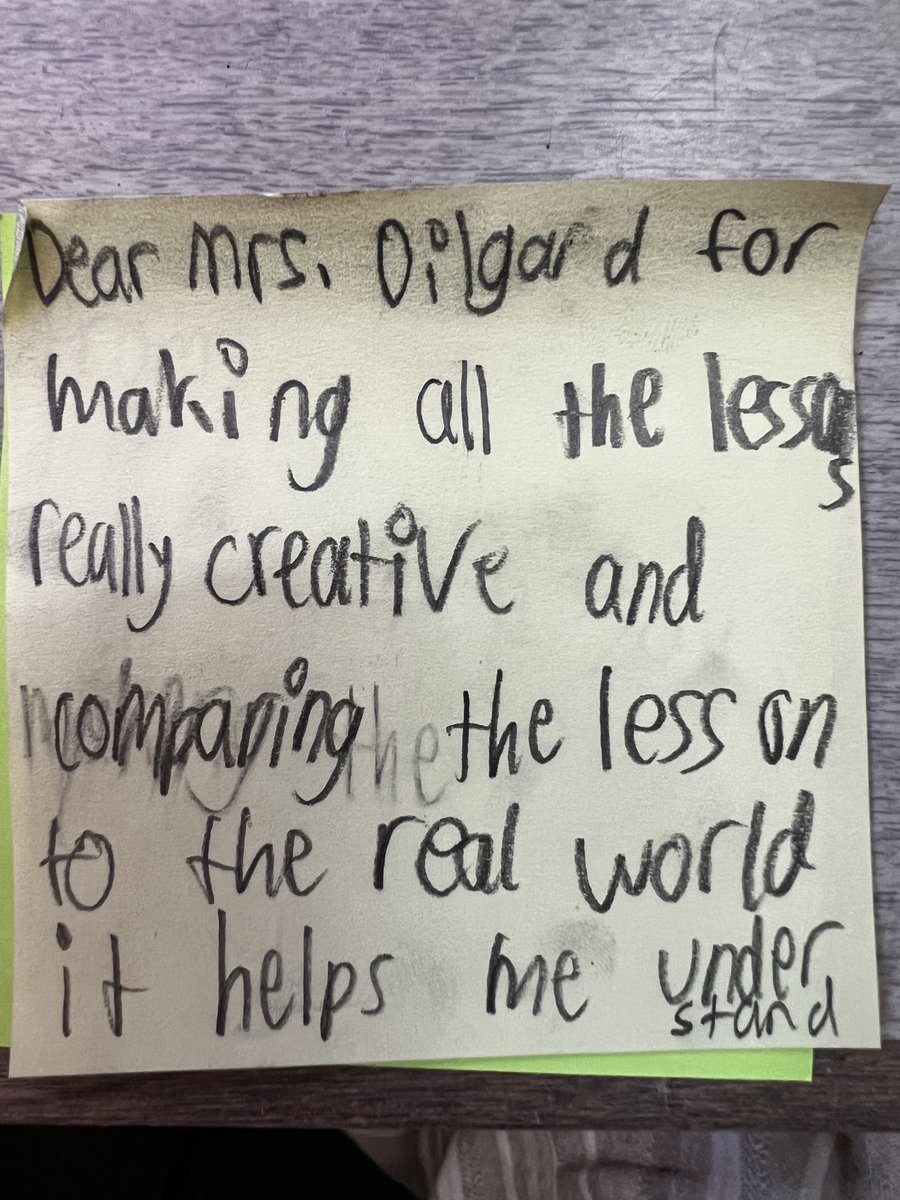 Dear Mrs. Dilgard for
making all the lessons
really creative and
comparing the lesson
to the real world
it helps me under
stand